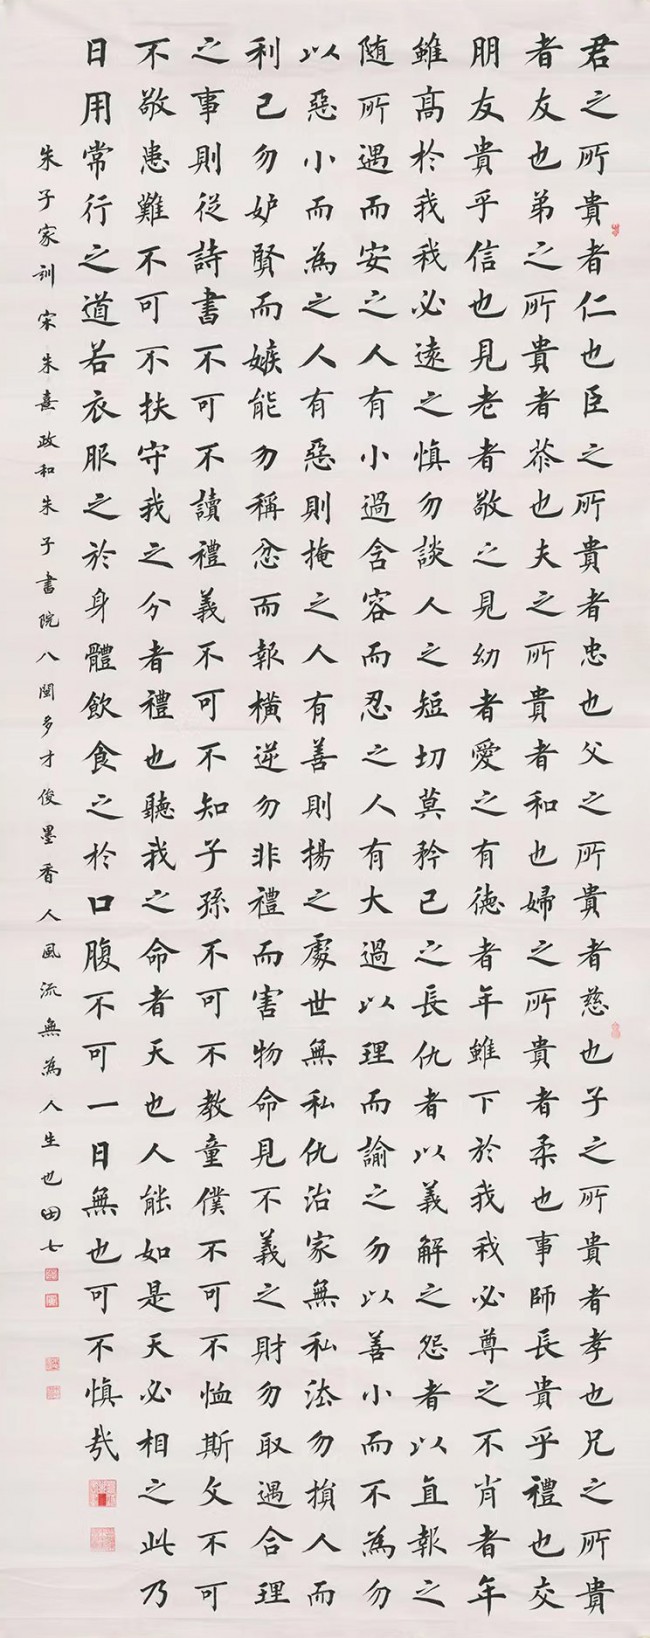 君之所貴者仁也臣之所貴者忠也父之所貴者慈也子之所貴者孝也兄之所貴
者友也弟之所貴者恭也夫之所貴者和也婦之所貴者柔也事師長貴乎禮也交
朋友貴乎信也見老者敬之見幼者愛之有德者年雖下於我我必尊之不肖者年
雖高於我我必遠之慎勿談人之短切莫矜己之長仇者以義解之怨者以直報之
随所遇而安之人有小過含容而忍之人有大過以理而諭之勿以善小而不為勿
以惡小而為之人有惡則掩之人有善則揚之處世無私仇治家無私法勿損人而
利己勿妒賢而嫉能勿稱忿而報橫逆勿非禮而害物命見不義之財勿取遇合理
之事則從詩書不可不讀禮義不可不知子孫不可不教童僕不可不恤斯文不可
不敬患難不可不扶守我之分者禮也聽我之命者天也人能如是天必相之此乃
日用常行之道若衣服之於身體飲食之於口腹不可一日無也可不慎哉
朱子家訓宋朱熹政和朱子書院八閩多才俊墨香人風流無為人生也田七